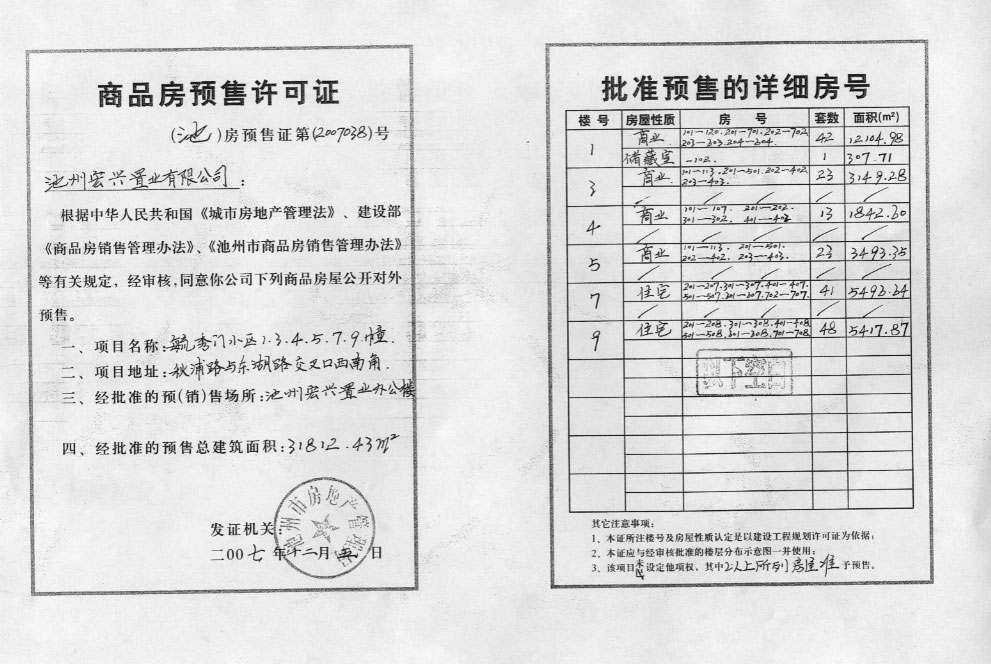 商品房预售许可证
(池)房预售证第(2007038)号
池州宏兴置业有限公司：
根据中华人民共和国《城市房地产管理法》、建设部
《商品房销售管理办法》、《池州市商品房销售管理办法》
等有关规定，经审核，同意你公司下列商品房屋公开对外
预售。
一、项目名称：毓秀门小区1.3.4.5.7.9幢.
二、项目地址：秋浦路与东湖路交叉口西南角.
三、经批准的预(销)售场所：池州宏兴置业办公楼
四、经批准的预售总建筑面积：31812.43m²
发证机关：
池州市房地产管理局
二00七年十二月 日
批准预售的详细房号
楼号 房屋性质 房号 套数 面积(m²)
1 商业. 101—120.201—701.202—702 42 12104.98
203—303.204—304.
储藏室 -102. 1 307.71
3 商业. 101—113.201—501.202—402 23 3149.28
203—403.
4 商业 101—107. 201—202. 13 1842.30
301—302. 401—402
5 商业 101—113. 201—501. 23 3493.35
202—402. 203—403.
7 住宅 201—207.301—307.401—407. 41 5492.24
501—507.601—607.702—707.
9 住宅 201—208.301—308.401—408 48 5417.87
501—508.601—608.701—708
以下空白
其它注意事项：
1、本证所注楼号及房屋性质认定是以建设工程规划许可证为依据；
2、本证应与经审核批准的楼层分布示意图一并使用；
3、该项目未设定他项权，其中以上所列房屋准予预售。